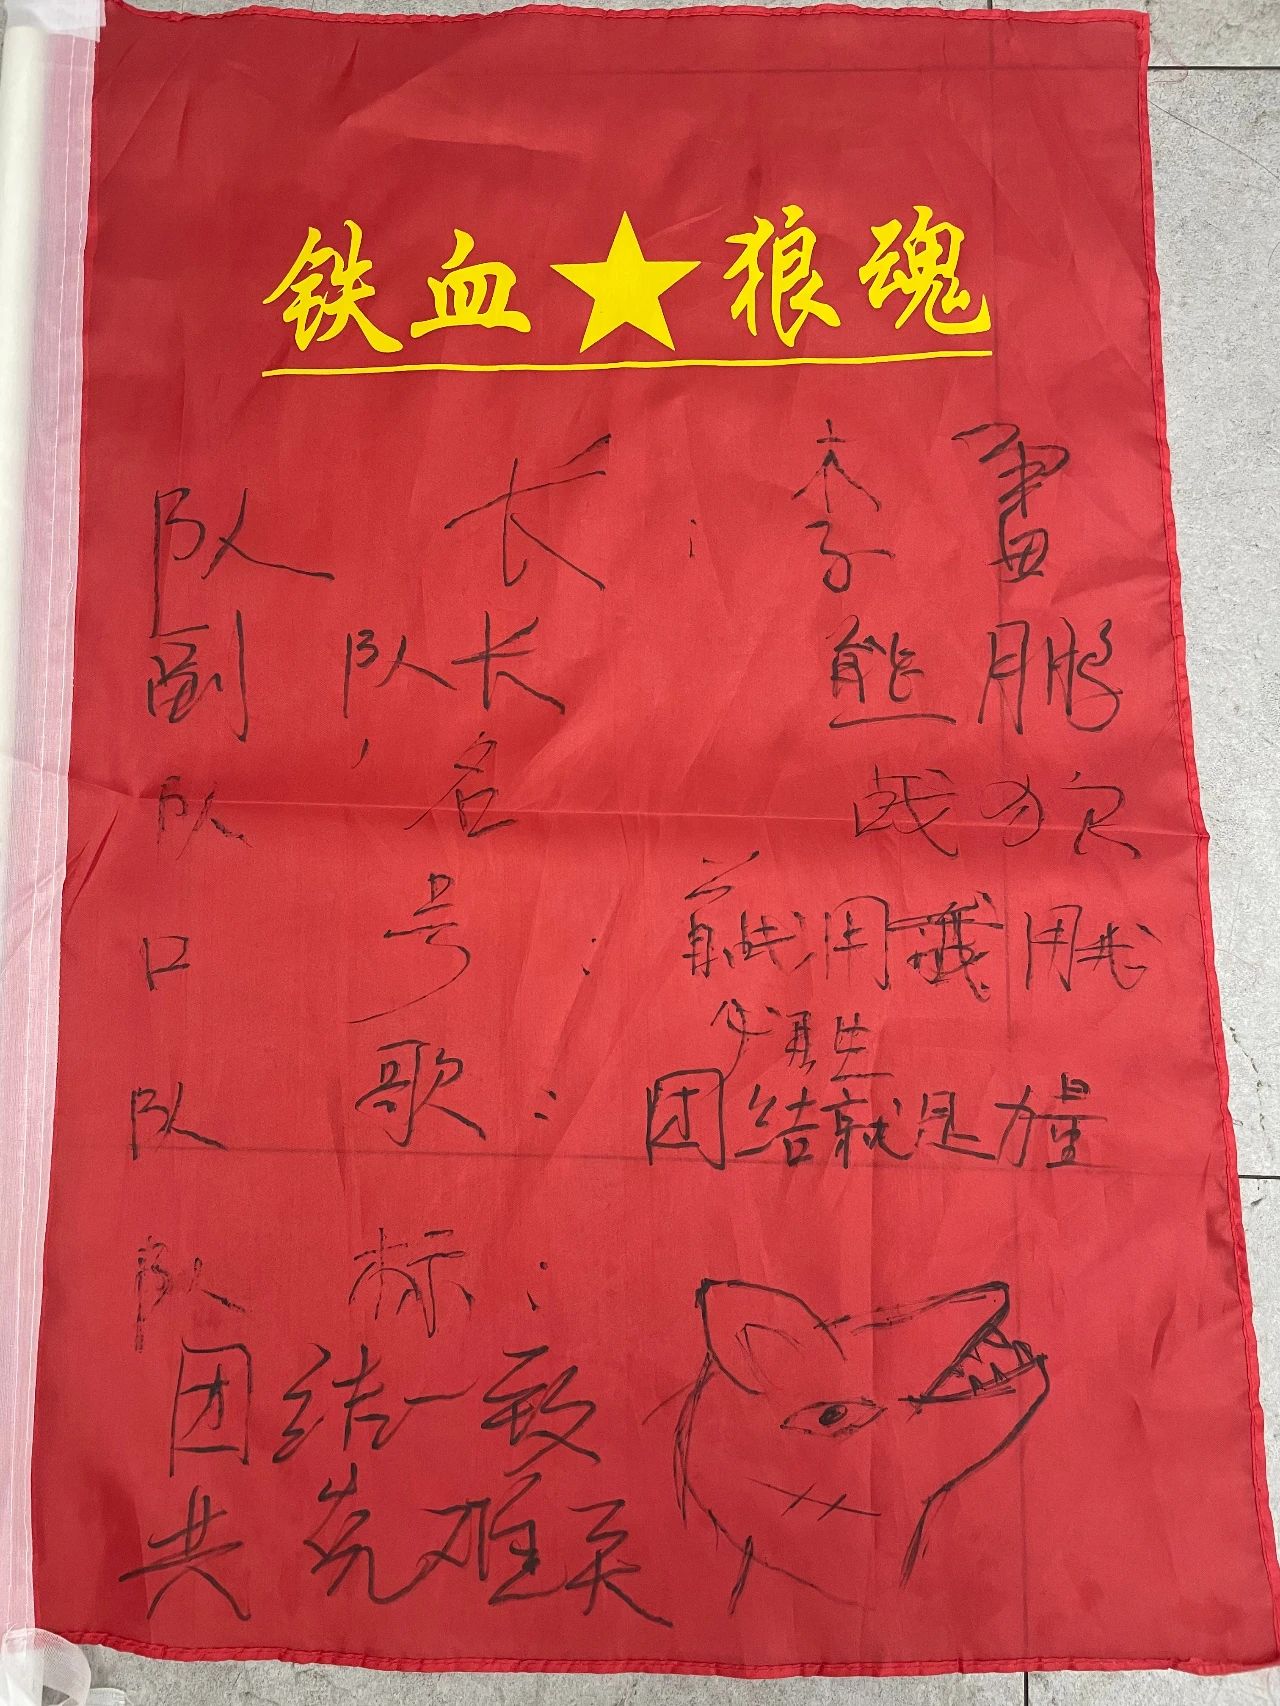 铁血★狼魂
队长：李雷
副队长 熊鹏
队名 战狼
口号：首战用我用我
必胜
队歌：团结就是力量
队标：
团结一致
共克难关